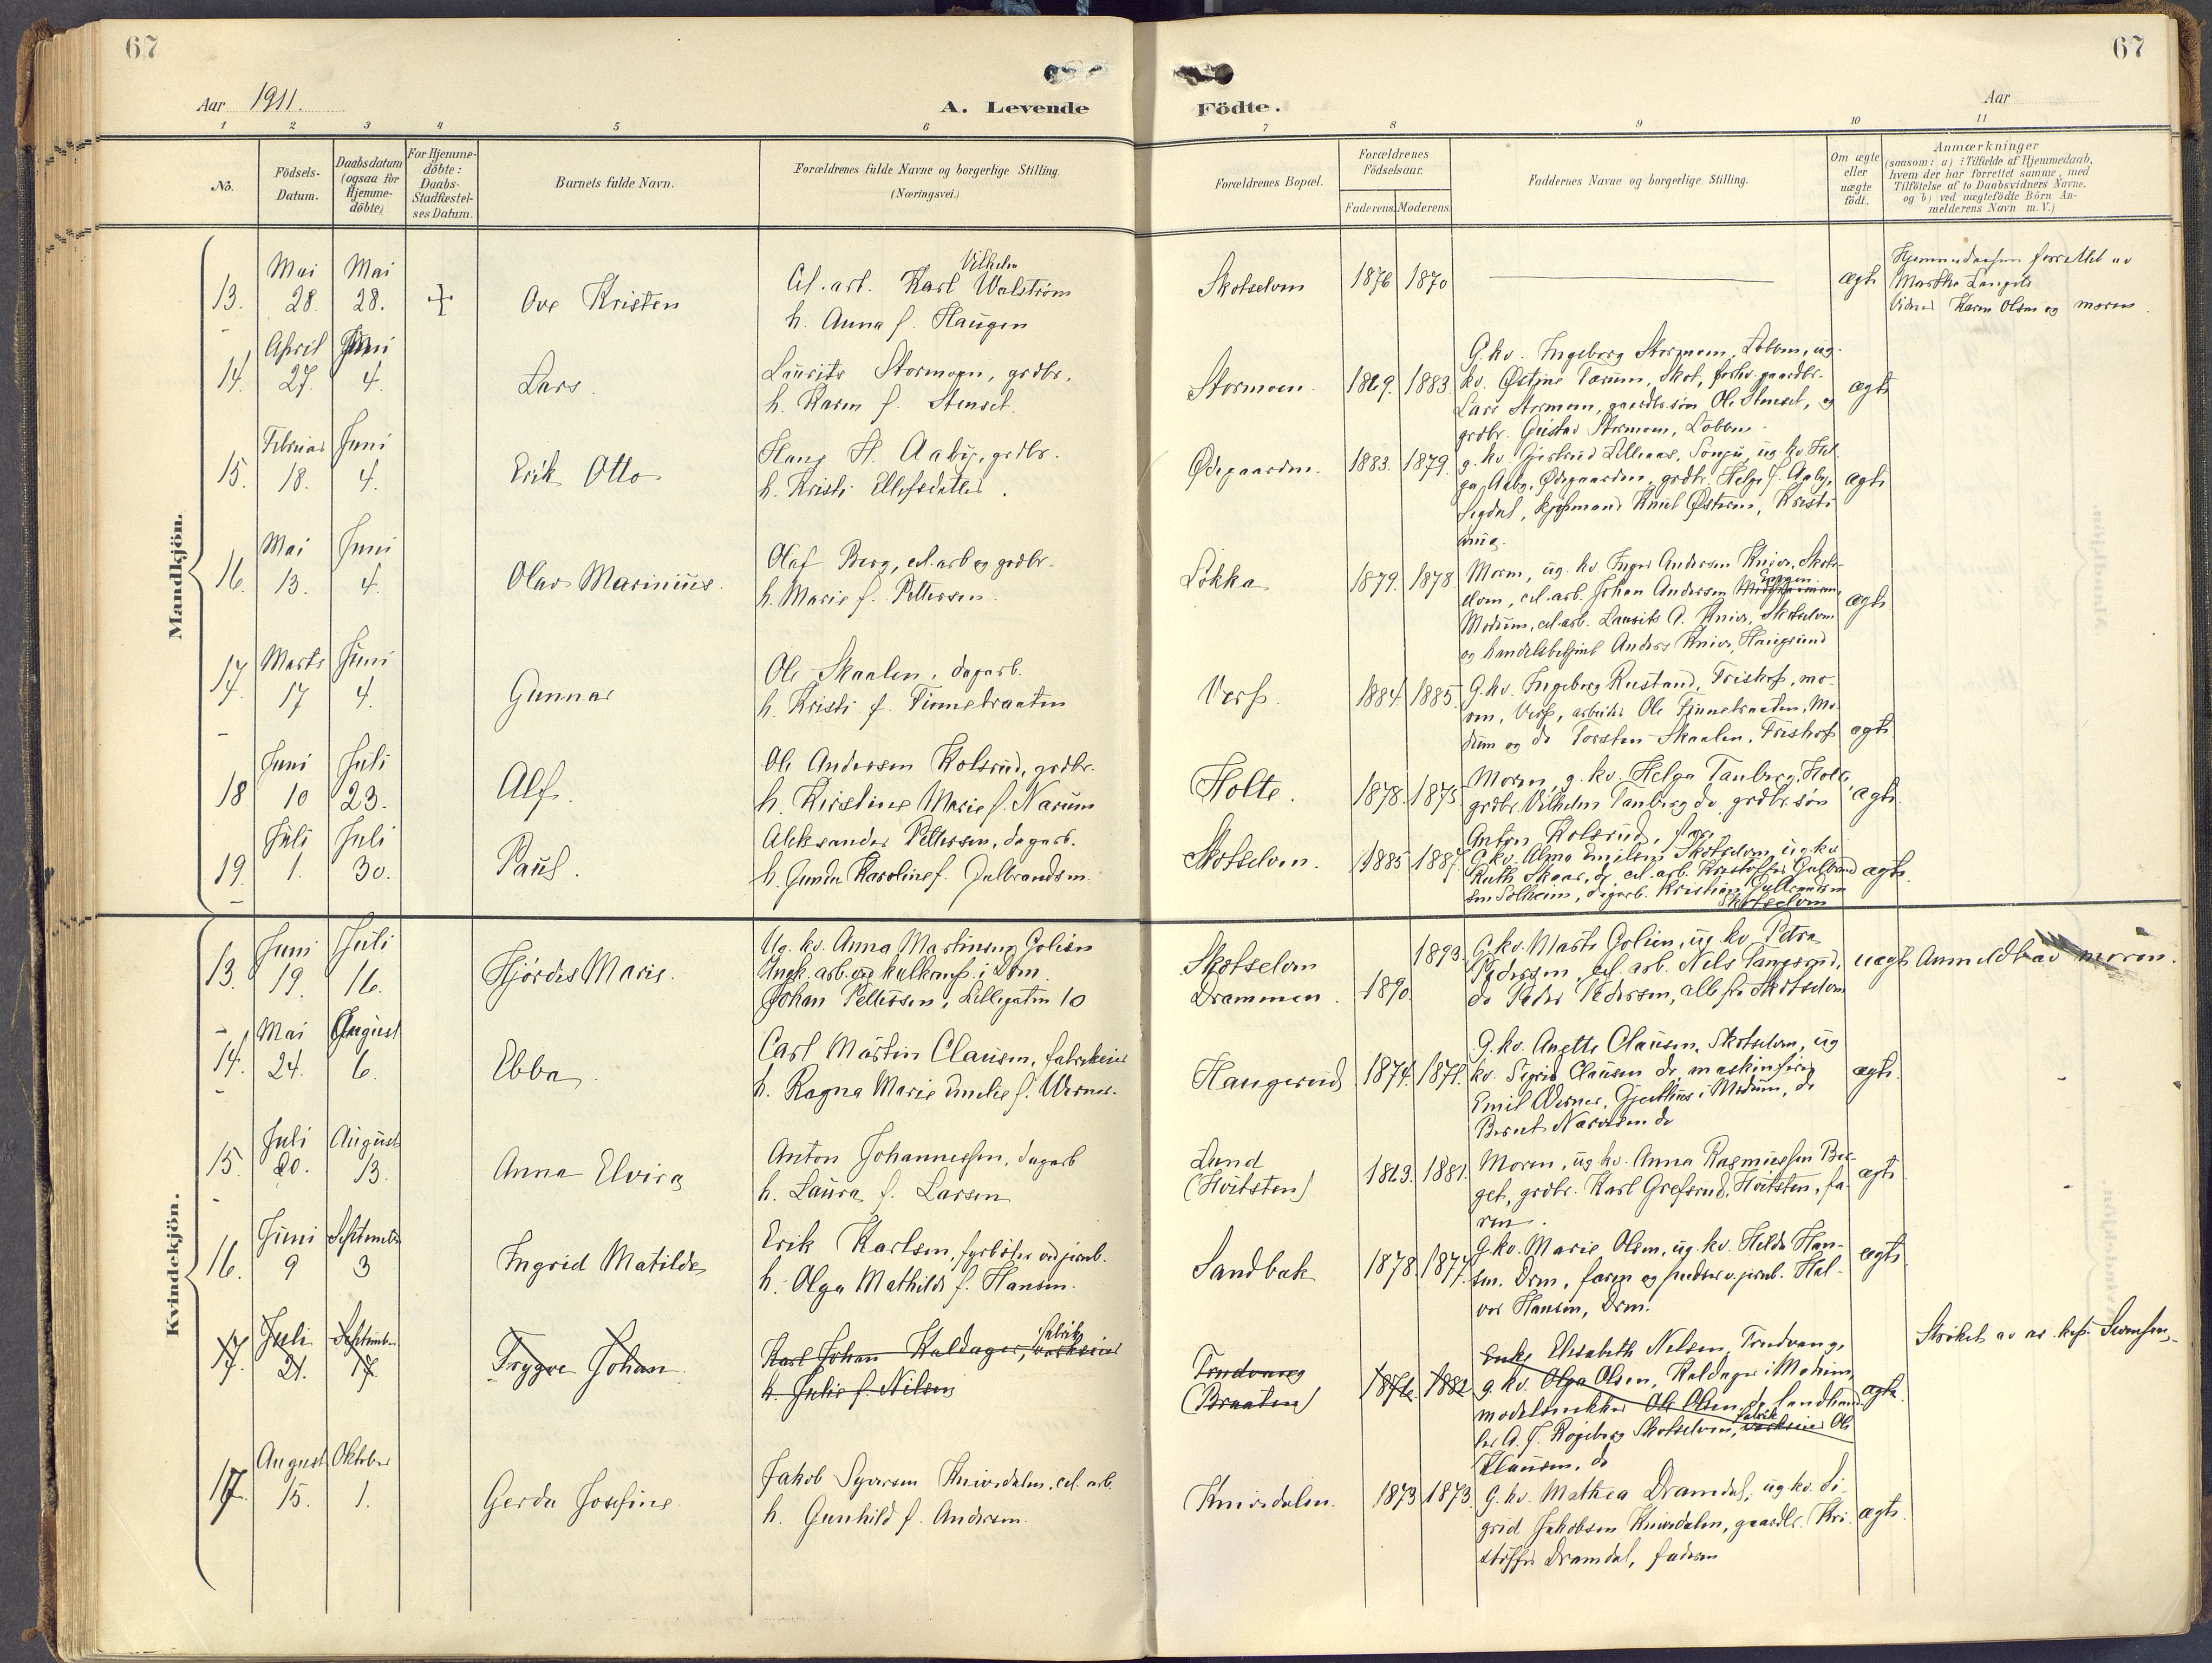 67
67
Aar 1911.
A. Levende Födte.
Aar
1 2 3 4 5 6 7 8 9 10 11
No.
Födsels-Datum.
Daabsdatum (ogsaa for Hjemme-döbte)
For Hjemme-döbte: Daabs-Stadfæstel-ses Datum.
Barnets fulde Navn.
Forældrenes fulde Navne og borgerlige Stilling. (Næringsvei.)
Forældrenes Bopæl.
Forældrenes Födselsaar.
Faderens. Moderens.
Faddernes Navne og borgerlige Stilling.
Om ægte eller uægte födt.
Anmærkninger
(saasom: a) i Tilfælde af Hjemmedaab,
hvem der har forrettet samme, med
Tilföielse af to Daabsvidners Navne.
og b) ved uægtefödte Börn An-
melderens Navn m. V.)
Mandkjön.
13. Mai 28. Mai 28. + Ove Kristen
Cel. arb. Karl Vilhelm Walström
h. Anna f. Haugen
Skotselven 1876 1870 ægte
Hjemmedaaben forrettet av
Martha Langeli
Vidner Karen Olsen og moren
14. April 27. Juni 4. Lars.
Laurits Stormoen, grdbr.
h. Karen f. Stenset.
Stormoen. 1869. 1883
G. kv. Ingeborg Stormoen, Løbben, ug.
kv. Østine Tarum, Skot, forhv. gaardbr.
Lars Stormoen, gaardbr.søn Ole Stenset, og
grdbr. Gustav Stormoen, Løbben
ægte
15. Februar 18. Juni 4. Erik Otto
Hans H. Aaby, grdbr.
h. Kristi Ellefsdatter.
Ødegaarden. 1883. 1879.
g. kv. Gjertrud Lilleaas, ug. kv. Hel-
ga Aaby, Ødegaarden, grdbr. Helge J. Aaby,
Sigdal, kjøpmand Knut Østern, Kristi-
ania.
ægte
16. Mai 13. Juni 4. Olav Marinius.
Olaf Berg, cel. arb og grdbr.
h. Marie f. Pettersen.
Løkka 1879. 1878
Moren, ug. kv. Inger Andersen Kniv, Skots-
elven, cel. arb. Johan Andersen
Modum, cel. arb. Laurits A. Kniv, Skotselven
og handelsbetjent Anders Kniv, Haugsund
ægte
17. Marts 17 Juni 4. Gunnar
Ole Skaalen, dagarb.
h. Kristi f. Finnebraaten
Verp. 1884. 1885
G. kv. Ingeborg Rustand, Friskop, mo-
ren, Verp, arbeider Ole Finnebraaten, Mo-
dum og do Torsten Skaalen, Friskop
ægte
18 Juni 10 Juli 23. Alf.
Ole Andersen Kolsrud, grdbr.
h. Kirstine Marie f. Narum
Holte. 1878. 1875
Moren, g. kv. Helga Tanberg, Holte,
grdbr. Vilhelm Tanberg do, grdbr.søn
Anton Kolsrud,
ægte
19. Juli 1. Juli 30. Paul.
Aleksander Pettersen, dagarb.
h. Gunda Karoline f. Gulbrandsen.
Skotselven. 1885 1887
G. kv. Alma Emilsen Skotselven, ug. kv
Ruth Skaar, do, cel. arb. Kristoffer Gulbrand-
sen Solheim, dagarb. Kristian Gulbrandsen
Skotselven
ægte
Kvindekjön.
13. Juni 19. Juli 16. Hjördis Marie.
Ug. kv. Anna Martinsen Golien
Ungk. arb. ved kulkomp. i Drm.
Johan Pettersen, Lillegaten 10
Skotselven
Drammen. 1890. 1893.
G. kv. Marte Golien, ug. kv. Petra
Pedersen, cel. arb. Nils Tangerud,
do Peder Pedersen, alle fra Skotselven
uægte Anmeldt av moren.
14. Mai 24. August 6. Ebba.
Carl Martin Clausen, fabrikeier
h. Ragna Marie Emilie f. Werner.
Haugerud 1874.
G. kv. Anette Clausen, Skotselven, ug
kv. Sigrid Clausen do, maskinfører
Emil Werner, i Modum, do
Bernt Narvesen do
ægte.
15. Juli 20. August 13. Anna Elvira
Anton Johannessen, dagarb
h. Laura f. Larsen
Lund
(Hvitsten) 1863. 1881.
Moren, ug. kv. Anna Rasmussen Ber-
get, grdbr. Karl Grefsrud, Hvitsten, fa-
ren.
ægte
16. Juni 9 September 3 Ingrid Matilde
Erik Karlsen, fyrbøter ved jernb.
h. Olga Mathilde f. Hansen.
Sandbak 1878. 1877.
G. kv. Marie Olsen, ug. kv. Hilda Han-
sen, Drm, faren og pudser v. jernb. Hal-
vor Hansen, Drm.
ægte
17. Juli 21. September 17. Trygve Johan
Karl Johan Kaldager, fabrik
h. Julie f. Nilsen
Trudvang
(Braaten) 1876. 1882
Enke Elisabeth Nilsen, Trudvang,
g. kv. Olga Olsen, Kaldager i Modum,
modelsnekker Ole Olsen, do landhand-
ler A. J. Røgeberg Skotselven, fabrik Ole
Clausen, do
ægte
Strøket av
17. August 15. Oktober 1. Gerda Josefine.
Jakob Syversen Knivedalen, cel. arb.
h. Gunhild f. Andersen.
Knivedalen. 1873 1873.
G. kv. Mathea Dramdal, ug. kv. Si-
grid Jakobsen Knivedalen, gaardbr. Kri-
stoffer Dramdal, faderen
ægte.